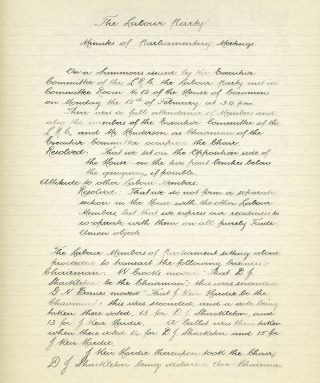 The Labour Party
Minutes of Parliamentary Meetings
On a Summons issued by the Executive
Committee of the L.R.C. the Labour Party met in
Committee Room No 12 of the House of Common
on Monday the 12th of February at 3.0 pm
There was a full attendance of Members and
also the members of the Executive Committee of the
L.R.C. and Mr Henderson as Chairman of the
Executive Committee occupied the Chair.
Resolved: That we sit on the Opposition side of
the House - on the two front benches below
the gangway, if possible
Attitude to other Labour Members.
Resolved: That we do not form a separate
section in the House with the other Labour
Members, but that we express our readiness to
co-operate with them on all purely Trade
Union objects.
The Labour Members of Parliament sitting alone
proceeded to transact the following business:-
Chairman. W Crooks moved "That D J
Shackleton be the Chairman"; this was seconded
G N Barnes moved "That J Keir Hardie be the
Chairman"; this was seconded, and a vote being
taken there voted, 13 for D J Shackleton, and
13 for J Keir Hardie. A ballot was then taken
when there voted 14 for D J Shackleton and 15 for
J Keir Hardie.
J Keir Hardie thereupon took the Chair,
D J Shackleton being declared Vice-Chairman